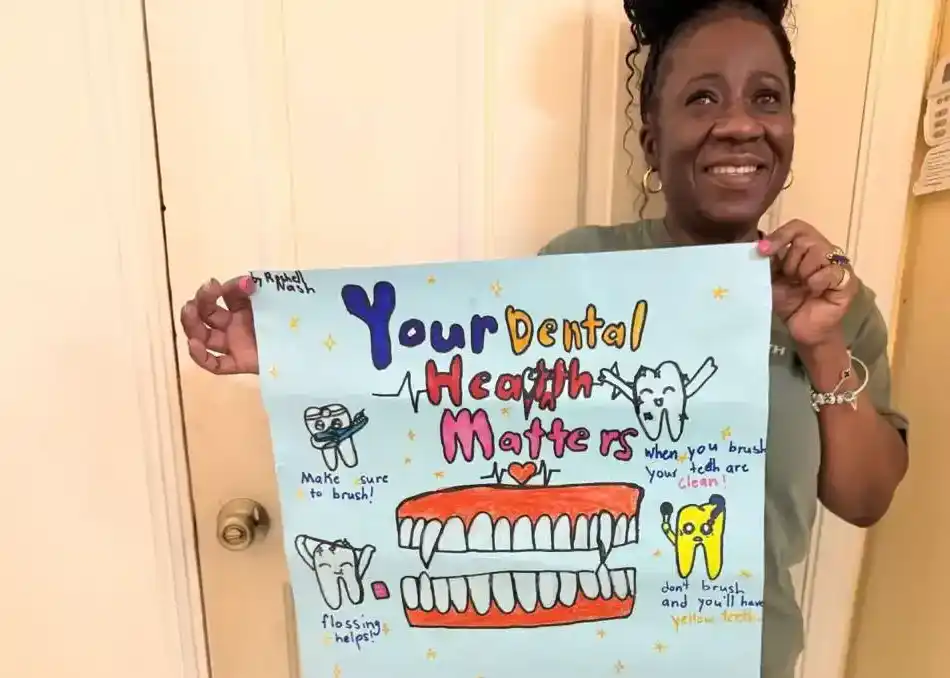 by Rashell
Nash
Your Dental
Health
Matters
Make sure
to brush!
when you brush
your teeth are
clean!
flossing
helps!
don't brush
and you'll have
yellow teeth.
TH